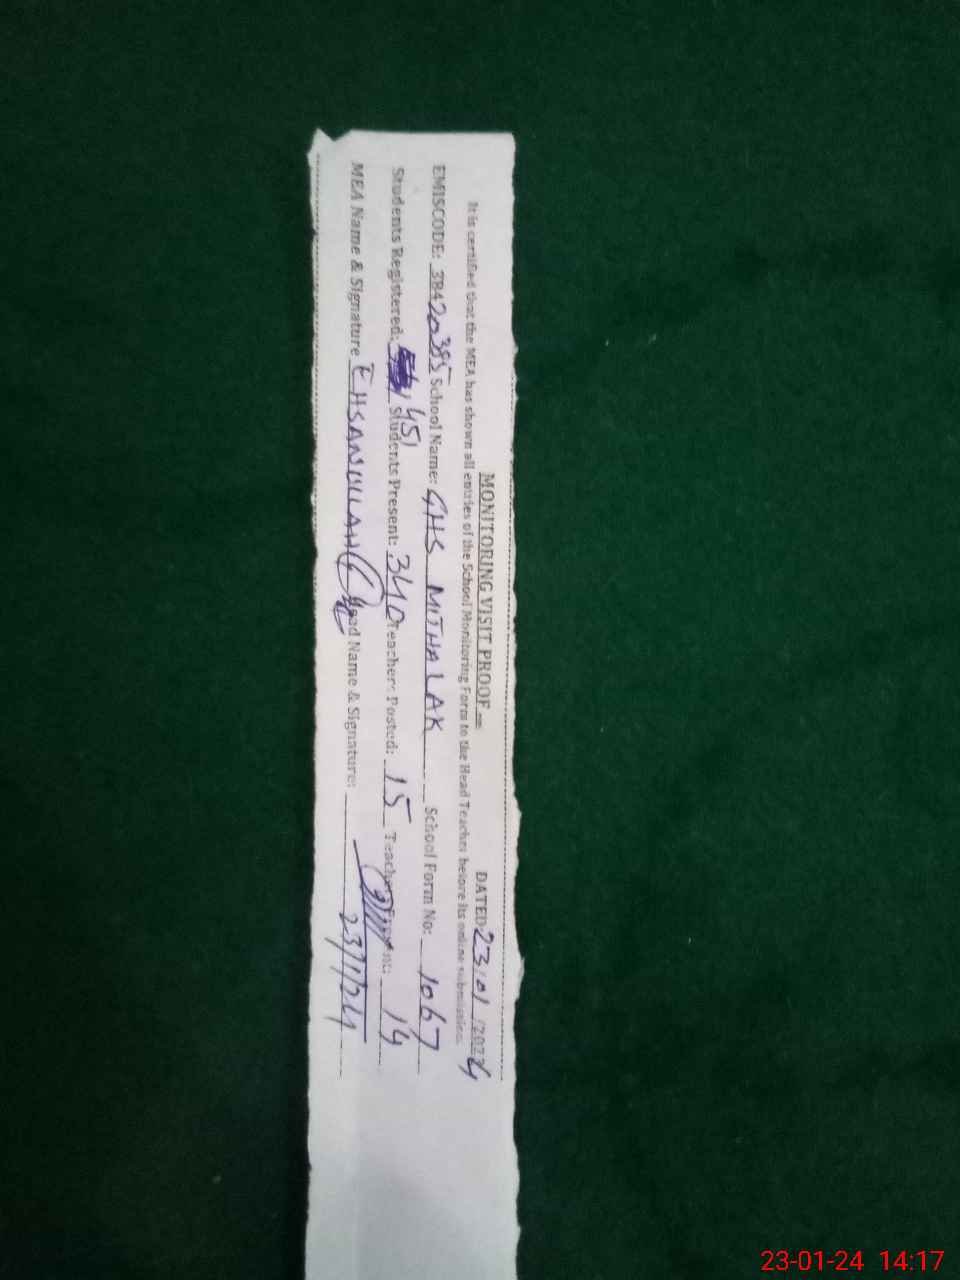 MONITORING VISIT PROOF DATED 23/01/2024
It is certified that the MEA has shown all entries of the School Monitoring Form to the Head Teacher before its online submission.
EMISCODE: 38420385 School Name: GHS MITHALAK School Form No: 1067
Students Registered: 451 Students Present: 340 Teachers Posted: 15 Teachers Present: 14
MEA Name & Signature EHSANULLAH Head Name & Signature: 23/1/24
23-01-24 14:17